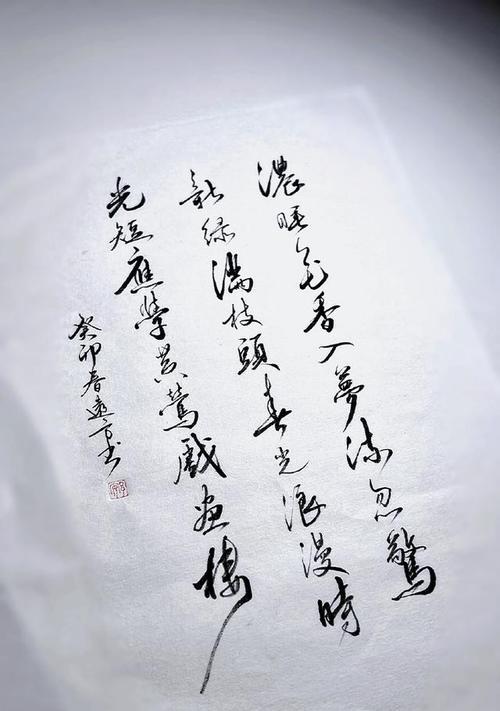 濃睡花香入夢流忽驚
新綠滿枝頭春光浪漫時
光短應學黃鶯戲畫樓
癸卯春遠方书